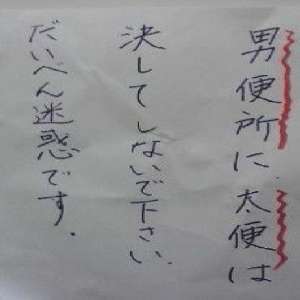 男便所に、太便は
決してしないで下さい、
だいべん迷惑です.